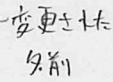 変更された
名前